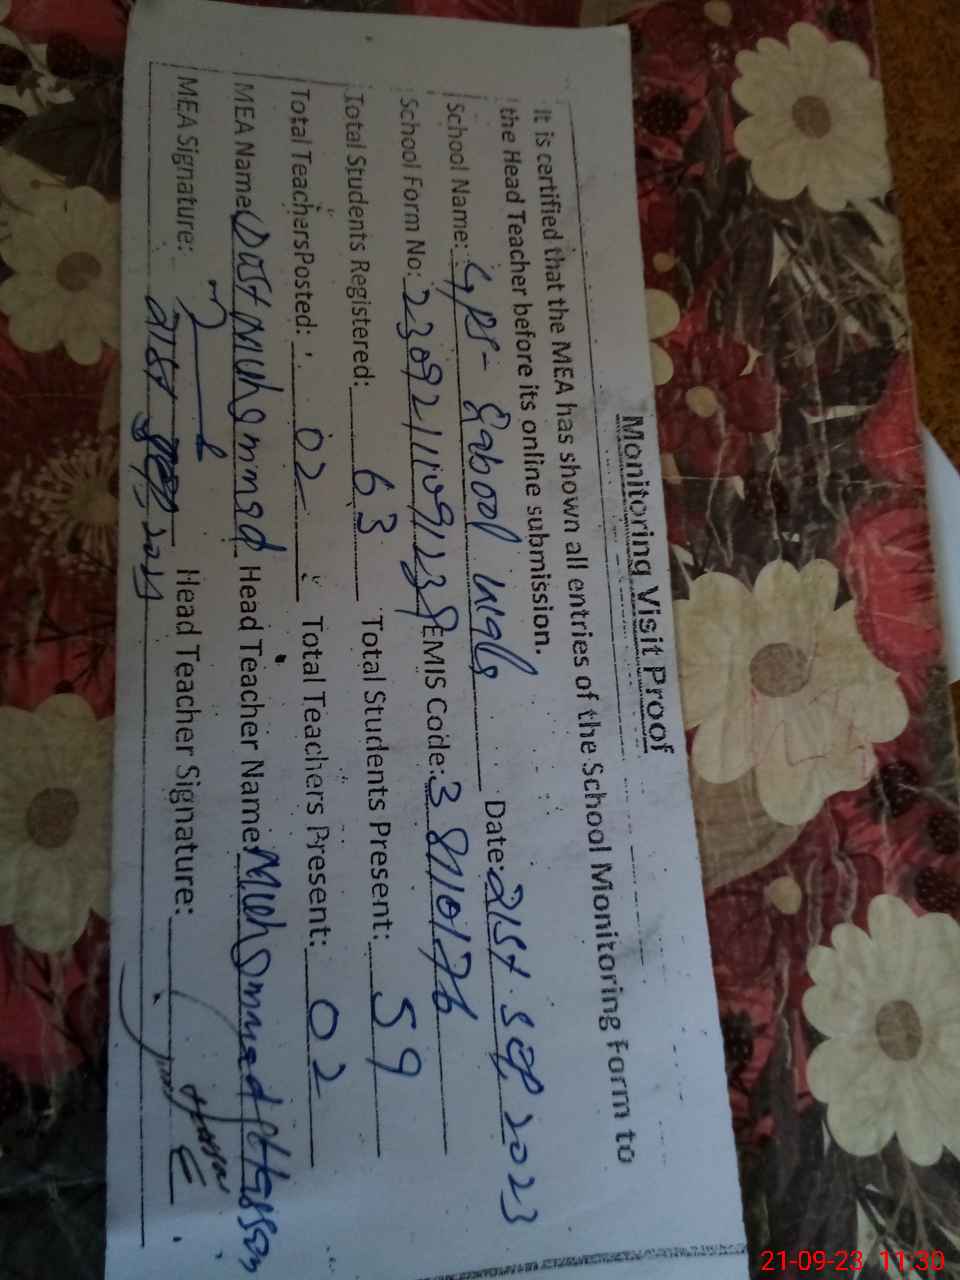 Monitoring Visit Proof
It is certified that the MEA has shown all entries of the School Monitoring Form to
the Head Teacher before its online submission.
School Name: GPS- Gabool Date: 21st sep 2023
School Form No: EMIS Code: 38110176
Total Students Registered: 63 Total Students Present: 59
Total Teachers Posted: 02 Total Teachers Present: 02
MEA Name: Dost Muhammad Head Teacher Name: Muhammad Hassan
MEA Signature: Head Teacher Signature: Hassan
21st sep,
21-09-23 11:30